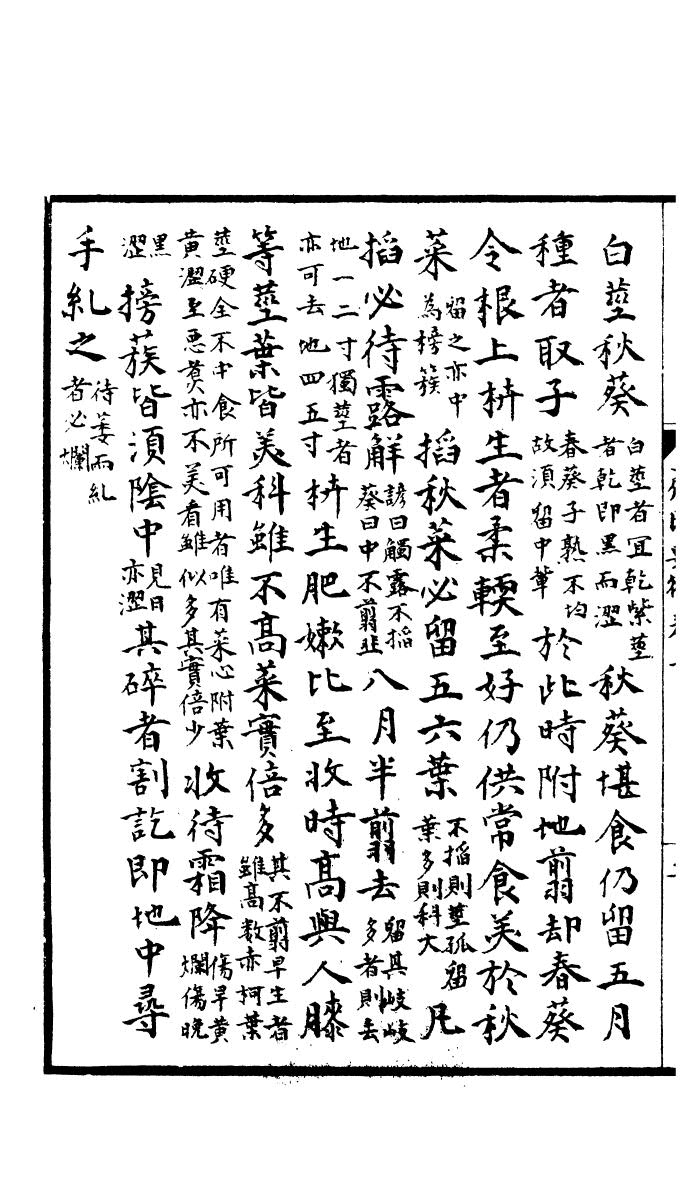 白莖秋葵白莖者宜乾紫莖者乾即黑而澀秋葵堪食仍留五月
種者取子春葵子熟不均故須留中輩於此時附地翦却春葵
令根上枿生者柔輭至好仍供常食美於秋
菜留之亦中為榜簇掐秋菜必留五六葉不掐則莖孤留葉多則科大凡
掐必待露解諺曰觸露不掐葵日中不翦韭八月半翦去留其岐岐多者則去
地一二寸獨莖者亦可去地四五寸枿生肥嫰比至收時高與人膝
等莖葉皆美科雖不高菜實倍多其不翦早生者雖高數亦柯葉
莖硬全不中食所可用者唯有菜心附葉黃澀至惡煑亦不美看雖似多其實倍少收待霜降傷早黃爛傷晚
黑澀榜蔟皆須陰中見日亦澀其碎者割訖即地中尋
手糺之待萎而糺者必爛